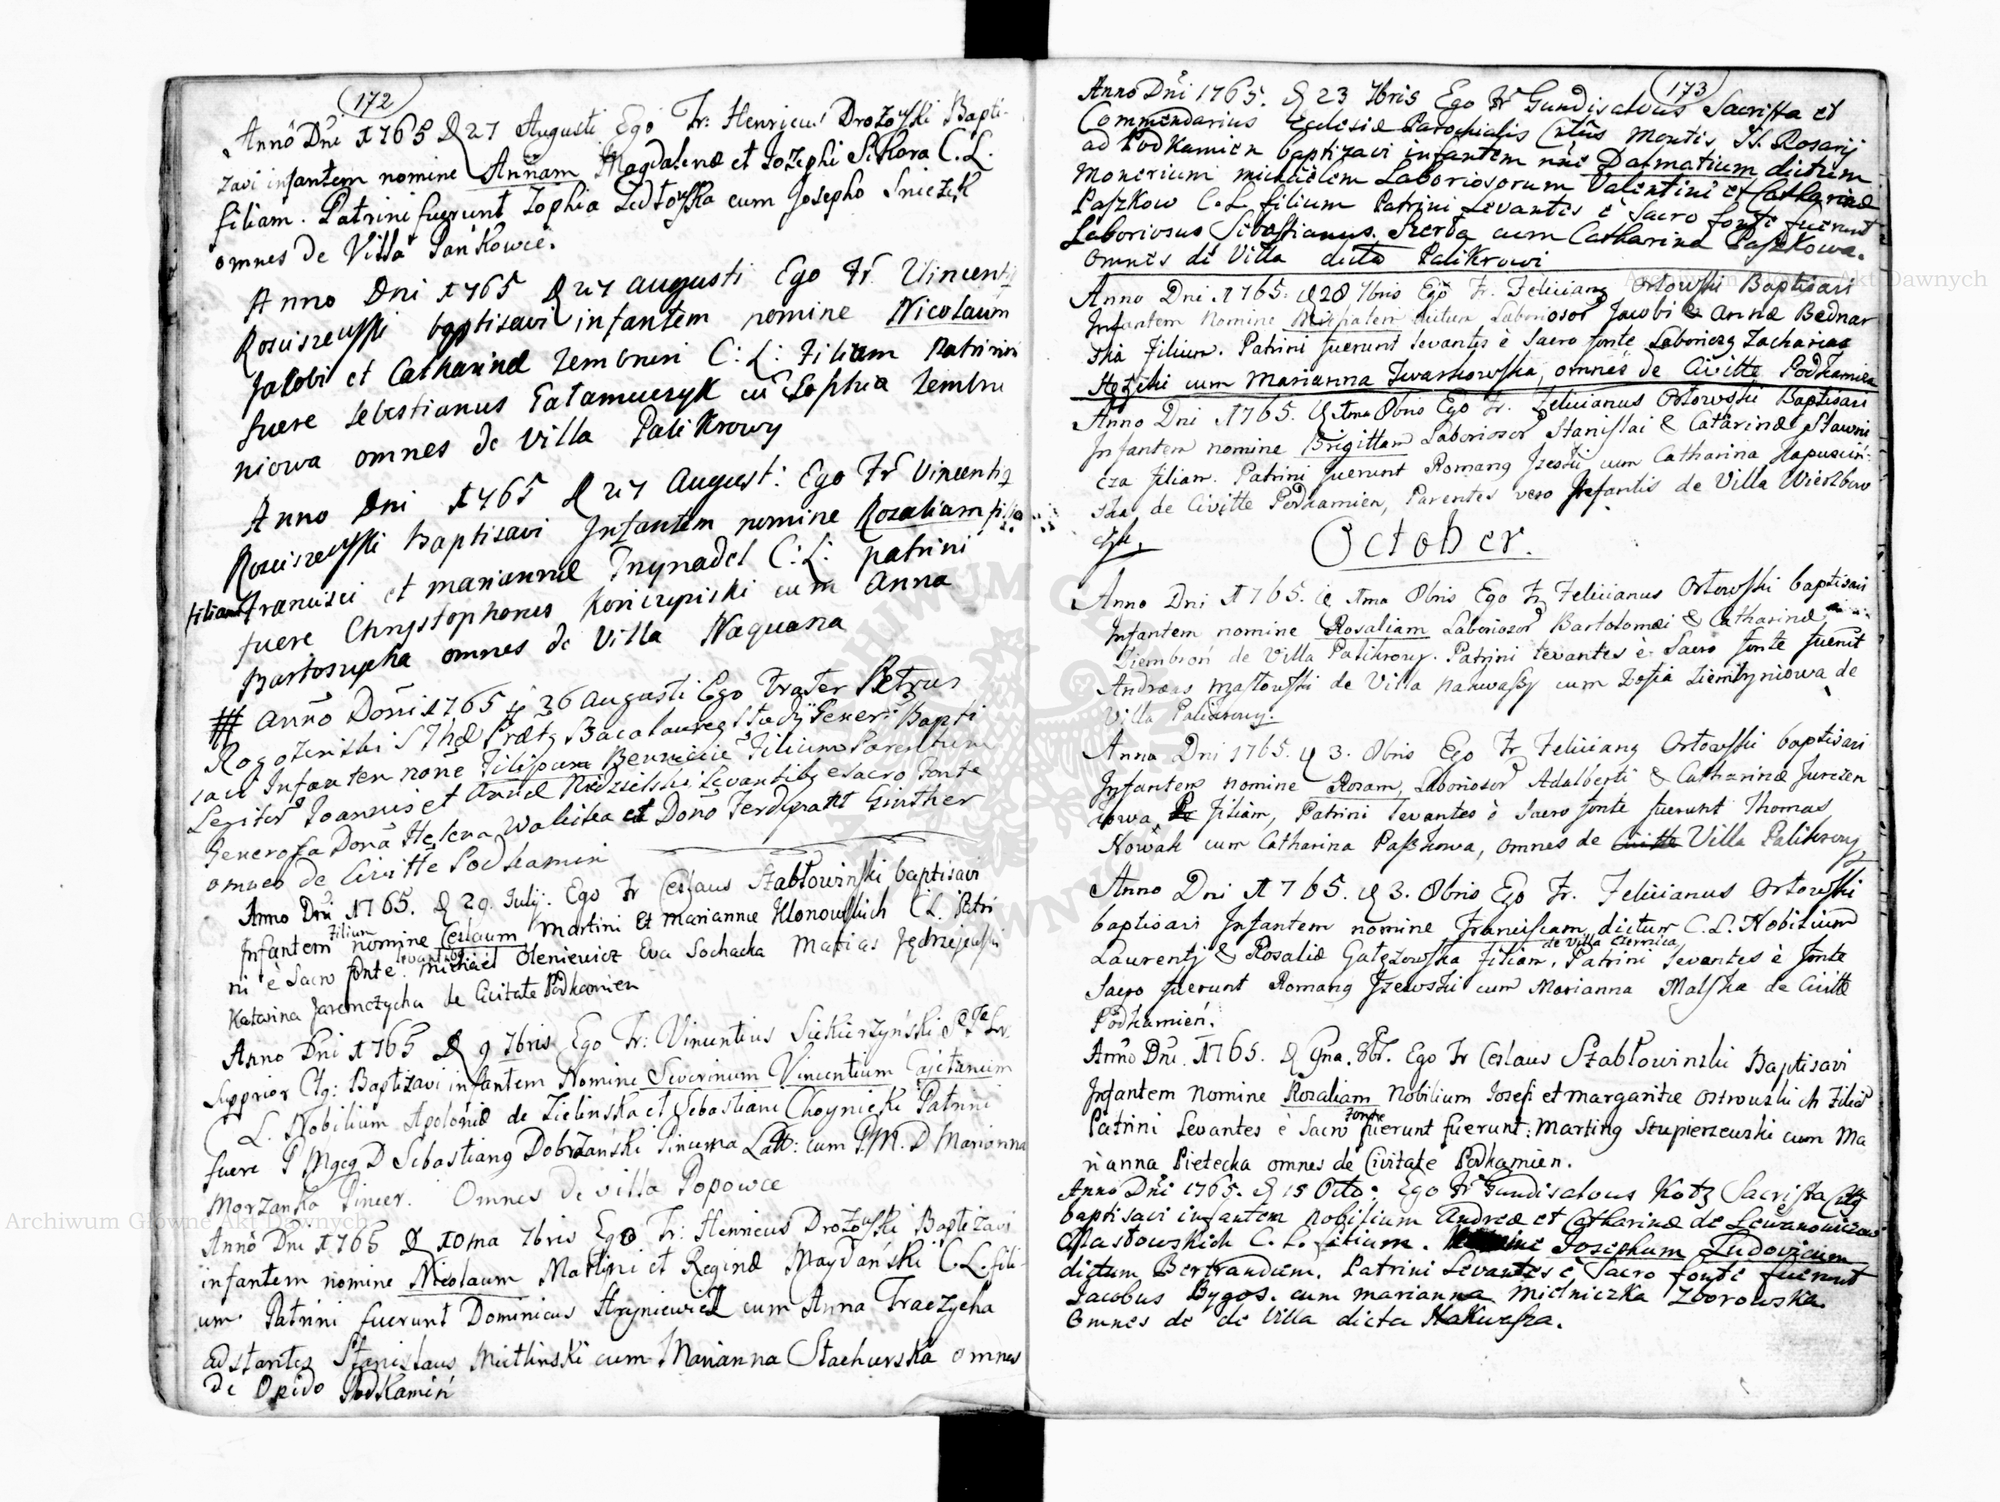 172
Anno Dni 1765 d 27 Augusti Ego Fr: Henricus Drozoyski Bapti-
zavi infantem nomine Annam Magdalenæ et Iozephi Sikora C. L.
filiam. Patrini fuerunt Zophia cum Josepho Sniezek
omnes de Villa Pańkowce.
Anno Dni 1765 d 27 augusti Ego Fr. Vincenti9
Rosciszewski baptisavi infantem nomine Nicolaum
Jacobi et Catharinæ Zembrun C: L: Filium Patrini
fuere Sebestianus Tatamuczyk cu Sophia Zembru
niowa omnes de villa Palikrowy
Anno Dni 1765 d 27 August: Ego Fr Vincenti9
Rosciszewski Baptisavi Infantem nomine Rozaliam
filiam Francisci et mariannæ C: L: patrini
fuere Chrystophorus Konczepiski cum Anna
Bartoszycha omnes de Villa Naquasza
# Anno Doni 1765 36 augusti Ego Frater Petrus
Rogozinski Bacalaureg Generi Bapti
savi Infantem none Filipum Benicium Filium Parentum
Legitor Joannis et Annæ Niedzielski Levantib9 e sacro Fonte
Generosa Dona Helena Walicka et Dono Ferdynant Ginther
omnes de Civitte Podkamin
Anno Dni 1765. d 29. Julij. Ego Fr Ceslaus Szabłowinski baptisavi
Filium
Infantem nomine Ceslaum Martini et Mariannæ Klonowskich C L. Patri
levantes
ni è Sacro fonte. Michael Oleniewicz Eva Sochacka Matias Jędrzejewski
Katarina Jaremczycha de Civitate Podkamien
Anno Dni 1765 d 9 7bris Ego Fr: Vincentius Siekierzyński
Supprior Ctg: Baptizavi infantem Nomine Severinum Vincentium Cajetanum
C L. Nobilium Apoloniæ de Zielinska et Sebastiani Choynicki Patrini
fuere P Mgcg D Sebastiang Dobrzański Pincerna Latt: cum P.M. D Marianna
Morzanska Pincer. Omnes de villa Popowce
Anno Dni 1765 d 10ma 7bris Ego Fr: Henricus Drozoyski Baptizavi
infantem nomine Nicolaum Martini et Reginæ Maydański C. L. fili-
um Patrini fuerunt Dominicus Hryniewicz cum Anna Traczycha
adstantes Stanislaus Mietlinski cum Marianna Stachurska omnes
de Opido Podkamiń
173
Anno Dni 1765. d 23 7bris Ego Fr Gundisalvus Sacrista et
Commendarius Ecclesiæ Parochialis Cntus Montis SS. Rosarij
ad Podkamien baptizavi infantem nne Dalmatium dictum
Monerium michaelem Laboriosorum Valentini et Catharinæ
Paszkow C. L. filium Patrini Levantes è Sacro fonte fuerunt
Laboriosus Sebastianus. Szerda cum Catharina Paszkowa.
omnes de Villa dicta Palikrowi
Anno Dni 1765. d 28 7bris Ego Fr. Feliciang Ortowski Baptisavi
Infantem Nomine dictum Laboriosor Jacobi & Annæ Bednar
ska Filium. Patrini fuerunt levantes è Sacro fonte Laboriczg Zacharias
cum Marianna Iwaszkowska, omnes de Civitte Podkamien
Anno Dni 1765. d 1ma 8bris Ego Fr. Felicianus Ortowski Baptisavi
Infantem nomine Brigittam Laboriosor Stanislai & Catarinæ Sławni
cza Filiam. Patrini fuerunt Romang cum Catharina Kapuscin-
ska de Civitte Podkamien, Parentes vero Infantis de Villa Wierzbow
czyk.
October.
Anno Dni 1765. d 1ma 8bris Ego Fr Felicianus Ortowski baptisavi
Infantem nomine Rosaliam Laboriosor Bartolomæi & Catharinæ
Ziembroń de Villa Palikrowy. Patrini levantes è Sacro fonte fuerunt
Andreas de Villa Nakwaszy cum Zofia Ziembryniowa de
Villa Palikrowy.
Anno Dni 1765. d 3. 8bris Ego Fr Feliciang Ortowski baptisavi
Infantem nomine Rosam, Laboriosor Adalberti & Catharinæ Jurczen
kowa Filiam, Patrini levantes è Sacro fonte fuerunt Thomas
Nowak cum Catharina Paszkowa, omnes de Civitte Villa Palikrowy
Anno Dni 1765. d 3. 8bris Ego Fr. Felicianus Ortowski
baptisavi Infantem nomine Franciscam, dictum C. L. Nobilium
de Villa Czernica
Laurentj & Rosaliæ Gałęzowska Filiam, Patrini levantes è fonte
Sacro fuerunt Romang cum Marianna Malska de Civitte
Podkamień.
Anno Dni. 1765. d 9na. 8br. Ego Fr Ceslaus Szabłowinski Baptisavi
Infantem nomine Rosaliam Nobilium Iosefi et margaritæ Ostrouskich Filia
Fonte
Patrini Levantes è Sacro fuerunt fuerunt: Marting Stupierzewski cum Ma
rianna Pietecka omnes de Civitate Podkamien.
Anno Dni 1765. d 15 Octo: Ego Fr Gundisalvus Kotz Sacrista Cttg
baptisavi infantem nobilium Andreæ et Catharinæ de Lewanowiczow
Mastowskich C. L. filium. Josephum Ludovicum
dictum Bertrandum. Patrini Levantes è Sacro fonte fuerunt
Jacobus Bygos. cum marianna Mielniczka Zborowska
omnes de de Villa dicta Nakwasza.
Archiwum Główne Akt Dawnych
Archiwum Główne Akt Dawnych